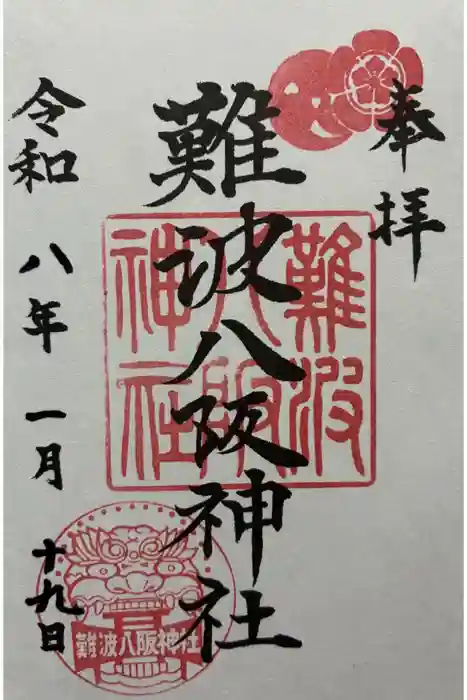 奉拝
難波八阪神社
難波
八阪
神社
令和八年一月十九日
難波八阪神社